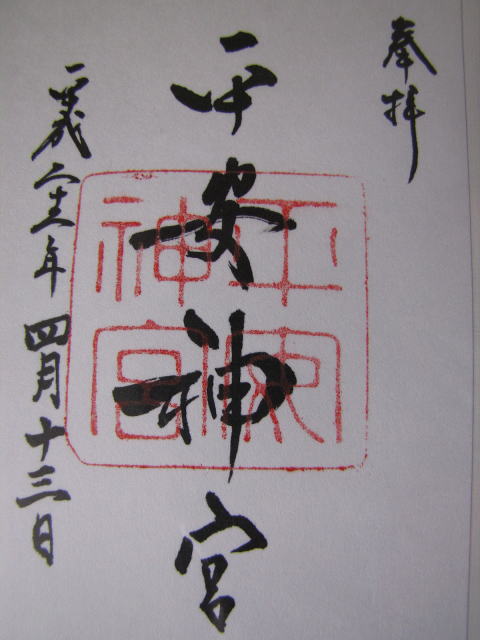 奉拝
平安神宮
平成二十三年四月十三日
平安
神宮